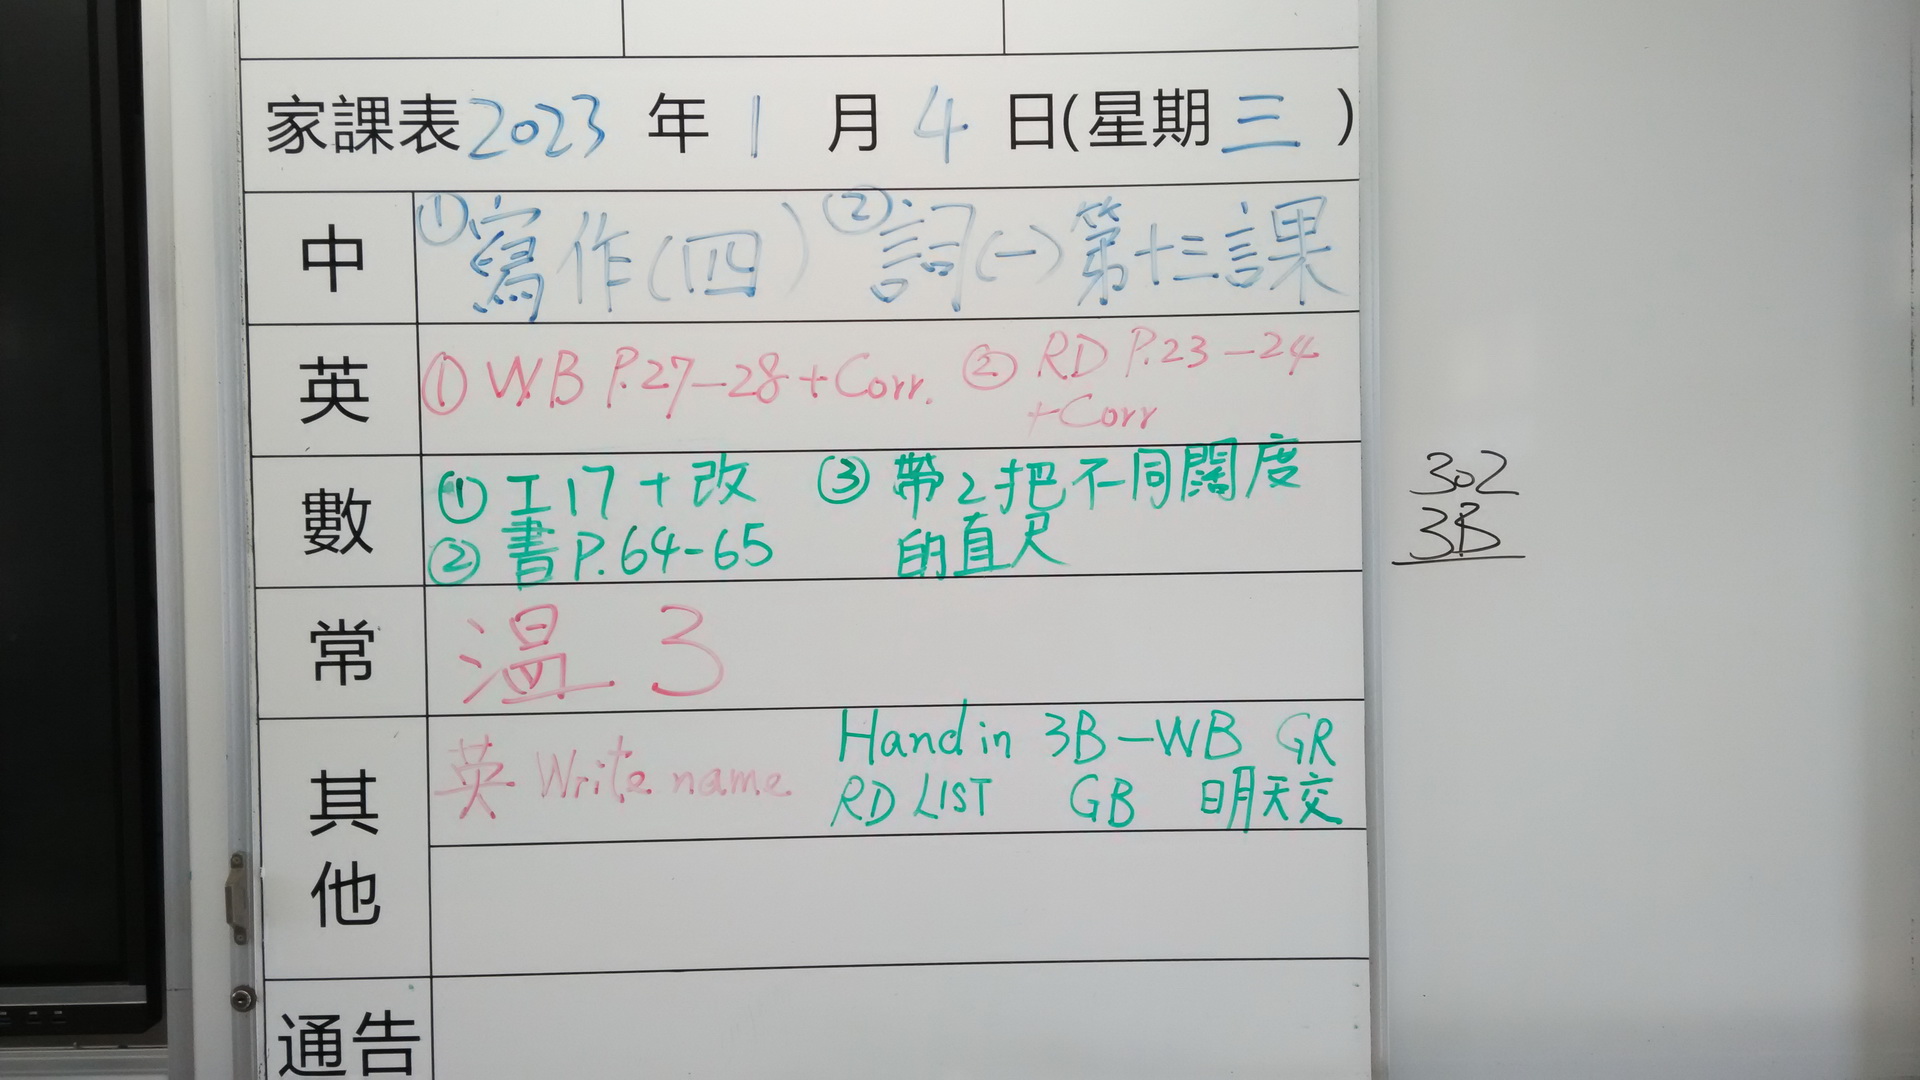 家課表2023年1月4日(星期三)
中 ①寫作(四) ②詞(一)第十三課
英 ①W.B P.27-28+Corr. ②RD P.23-24
+Corr
數 ①工17+改 ③帶2把不同闊度
②書P.64-65 的直尺
常 温3
其他 英 Write name Hand in 3B-WB GR
RD LIST GB 明天交
通告
302
3B